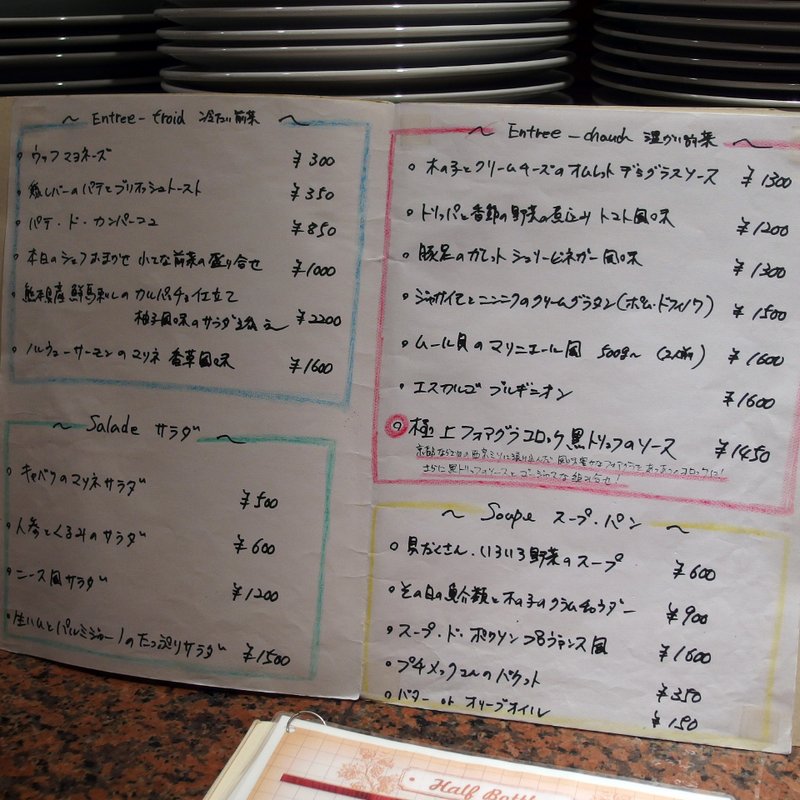 ~ Entree - froid 冷たい前菜 ~
• ウッフ マヨネーズ ¥300
• 鶏レバーのパテとブリオッシュトースト ¥350
• パテ・ド・カンパーニュ ¥850
• 本日のシェフおまかせ 小さな前菜の盛り合せ ¥1000
• 熊本県産 鮮馬刺しのカルパッチョ仕立て
柚子風味のサラダ添え ¥2200
• ノルウェーサーモンのマリネ 香草風味 ¥1600
~ Salade サラダ ~
• キャベツのマリネサラダ ¥500
• 人参とくるみのサラダ ¥600
• ニース風サラダ ¥1200
• 生ハムとパルミジャーノのたっぷりサラダ ¥1500
~ Entree - chaud 温かい前菜 ~
• 木の子とクリームチーズのオムレット デミグラスソース ¥1300
• トリッパと季節の野菜の煮込み トマト風味 ¥1200
• 豚足のガレット シェリービネガー風味 ¥1300
• ジャガイモとニンニクのクリームグラタン(ポム・ドフィノワ) ¥1500
• ムール貝のマリニエール風 500g〜 (2人前) ¥1600
• エスカルゴ ブルギニオン ¥1600
• 極上フォアグラコロッケ 黒トリュフのソース ¥1450
京都なら2日の西京ミソに漬け込んだ 風味豊かなフォアグラで あつあつコロッケに!
さらに黒トリュフソースとゴージャスな組み合せ!
~ Soupe スープ・パン ~
• 具だくさん・いろいろ野菜のスープ ¥600
• その日の魚介類と木の子のクラムチャウダー ¥900
• スープ・ド・ポワソン プロヴァンス風 ¥1600
• プチメックさんのバケット ¥350
• バター or オリーブオイル ¥150
Half Bottl